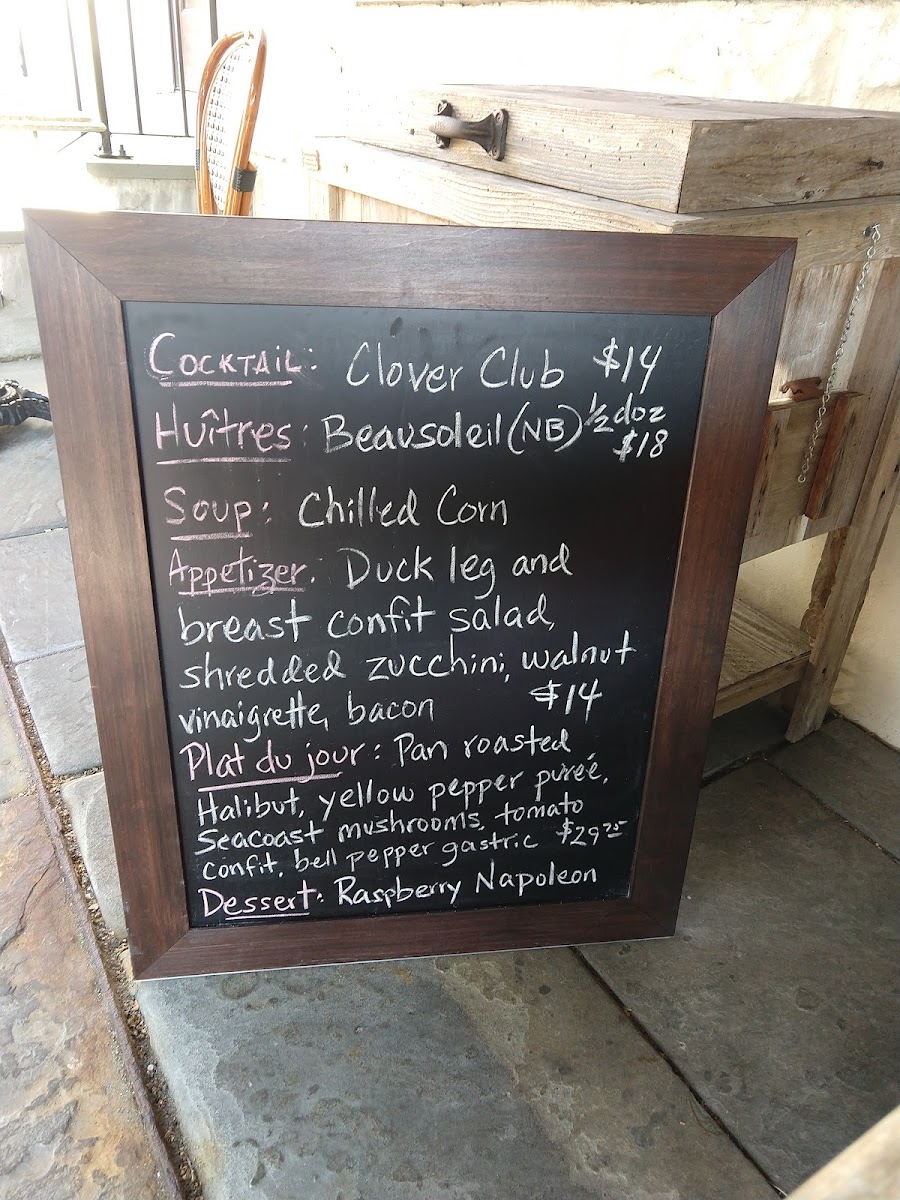 Cocktail: Clover Club $14
Huîtres: Beausoleil (NB) 1/2 doz $18
Soup: Chilled Corn
Appetizer: Duck leg and
breast confit salad,
shredded zucchini, walnut
vinaigrette, bacon $14
Plat du jour: Pan roasted
Halibut, yellow pepper pureé,
Seacoast mushrooms, tomato
confit, bell pepper gastric $29.25
Dessert: Raspberry Napoleon